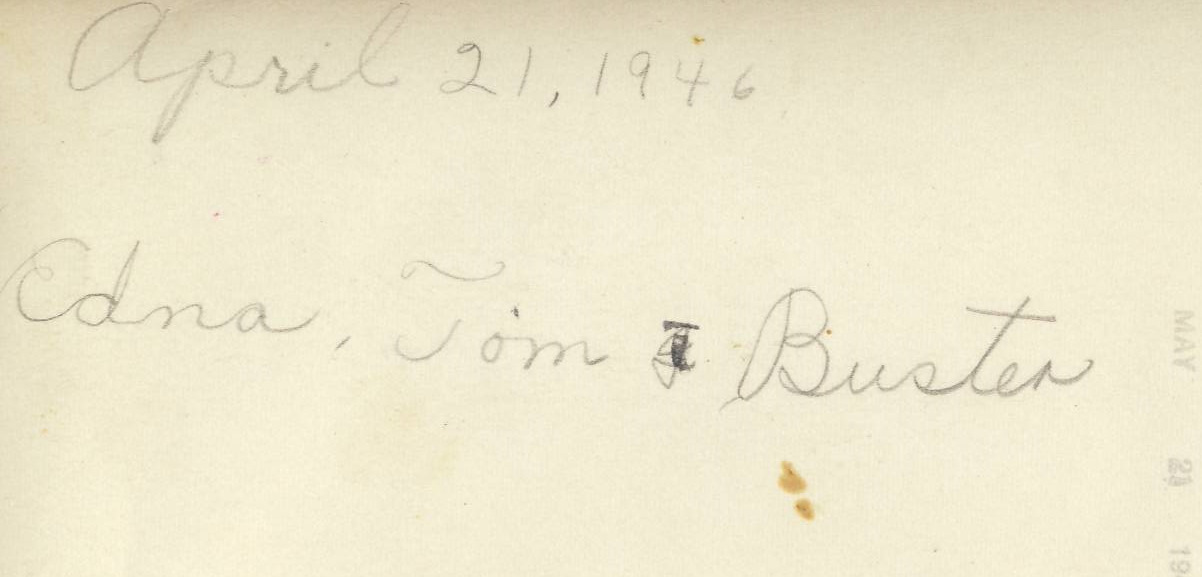 April 21, 1946
Edna, Tom & Buster
MAY 21 19